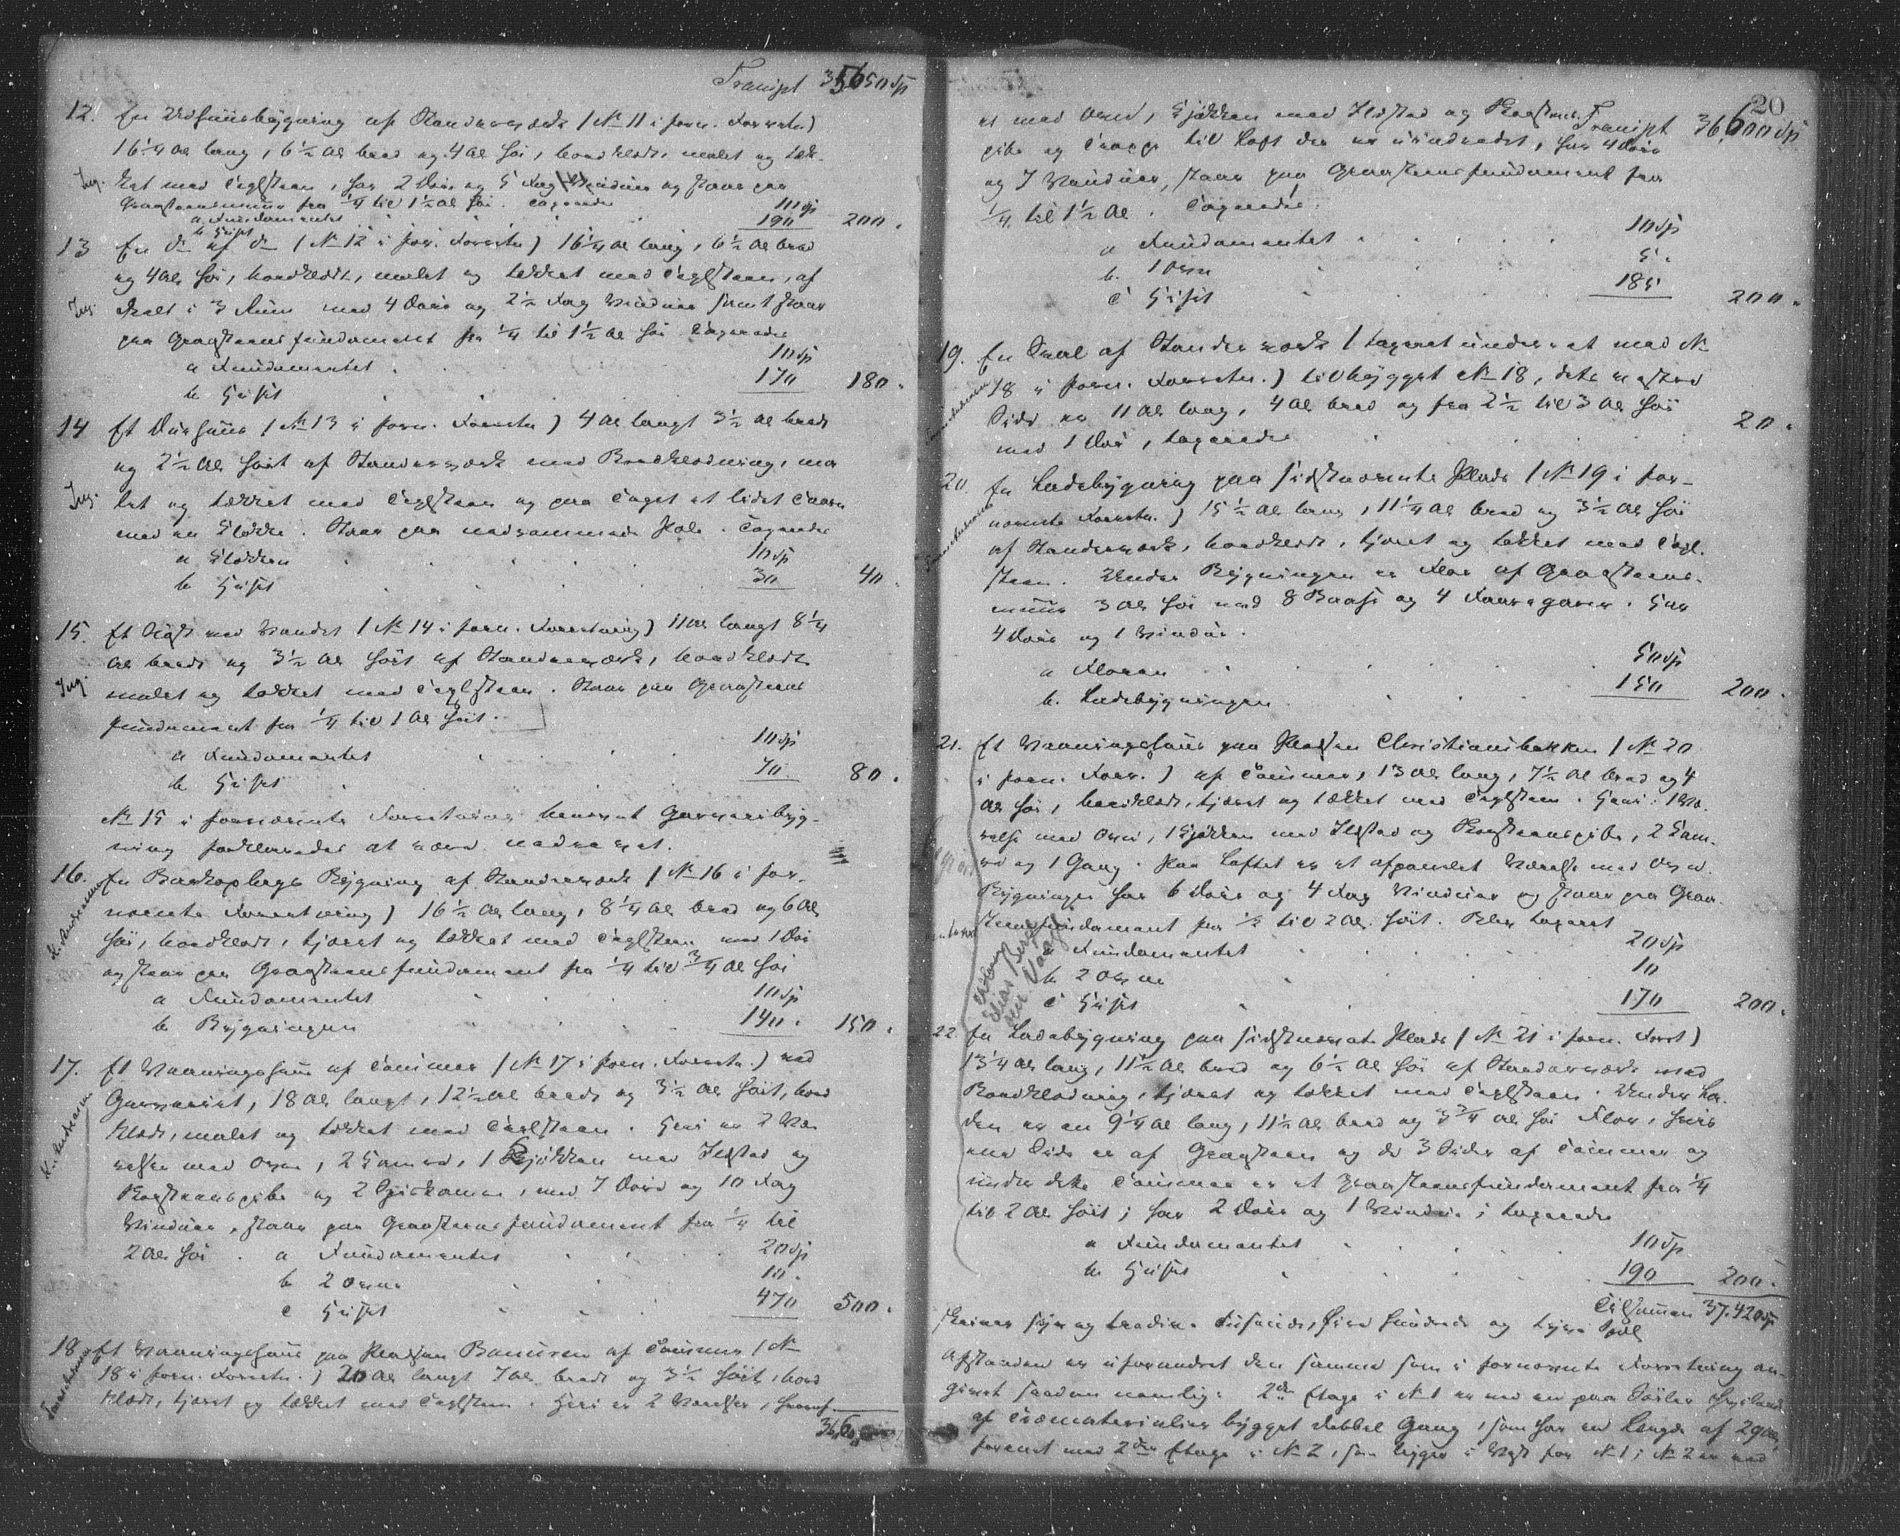 Transpt 35650 Sp
12. En Udhuusbygning af Standerværk (No 11 i forn. Forretn.)
16 1/4 Al lang, 6 1/2 Al bred og 4 Al høi, bordklædt, malet og tæk-
Ing. ket med Teglsteen, har 2 Døre og 5 Fag Vinduer og staar paa
Graasteensmuur fra 1/4 til 1 1/2 Al høi. Taxeredes
a Fundamentet 10 Sp
b Huset 190 200.
13 En do af do (No 12 i forn. Forretn.) 16 1/4 Al lang, 6 1/2 Al bred
og 4 Al høi, bordklædt, malet og tækket med Teglsteen, af
Ing deelt i 3 Rum med 4 Døre og 2 1/2 Fag Vinduer samt staar
paa Graasteensfundament fra 1/4 til 1 1/2 Al høi. Taxeredes
a Fundamentet 10 Sp
b Huset 170 180.
14 Et Duehuus (No 13 i forn. Forretn.) 4 Al langt 3 1/2 Al bredt
og 2 1/2 Al høit af Standerværk med Bordklædning, ma
Ing let og tækket med Teglsteen og paa Taget et lidet Taarn
med en Klokke. Staar paa nedrammede Pæle. Taxeredes
a Klokken 10 Sp
b Huset 30 40.
15. Et Sjøhus ved Vandet (No 14 i forn. Forretning) 11 Al langt 8 1/4
Al bredt og 3 1/2 Al høit af Standerværk, bordklædt
Ing. malet og tækket med Teglsteen. Staar paa Graasteens
fundament fra 1/4 til 1 Al høit.
a Fundamentet 10 Sp
b Huset 70 80.
No 15 i fornævnte Forretning benævnt Garveribyg-
ning forklaredes at være nedrevet.
16. En Barkoplags Bygning af Standerværk (No 16 i for-
nævnte Forretning) 16 1/2 Al lang, 8 1/4 Al bred og 6 Al
K. Andersen høi, bordklædt, tjæret og tækket med Teglsteen med 1 Dør
og staar paa Graasteensfundament fra 1/4 til 3/4 Al høi
a Fundamentet 10 Sp
b Bygningen 140. 150.
17. Et Vaaningshuus af Tømmer (No 17 i forn. Forretn.) ved
Garveriet, 18 Al langt, 12 1/2 Al bredt og 3 1/2 Al høit, bord
K. Andersen klædt, malet og tækket med Teglsteen. Heri er 2 Væ
relser med Ovne, 2 Kamre, 1 Kjøkken med Ildsted og
Kogsteenspibe og 2 Spiskamre, med 7 Døre og 10 Fag
Vinduer, staar paa Graasteensfundament fra 1/4 til
2 Al høi. a Fundamentet 20 Sp
b 2 Ovne 10.
c Huset 470 500.
18 Et Vaaningshuus paa Pladsen af Tømmer (No
18 i forn. Forretn.) 20 Al langt 7 Al bredt og 3 1/2 høit, bord
klædt, tjæret og tækket med Teglsteen. Heri er 2 Værelser, hvoraf
36,600
20
et med Ovn, Kjøkken med Ildsted og Kogsteens Transpt 36,600 Sp
pibe og Trappe til Loft der er uindredet, har 4 Døre
og 7 Vinduer, staar paa Graasteensfundament fra
1/4 til 1 1/2 Al. Taxeredes
a Fundamentet 10 Sp
b. 1 Ovn 5.
c Huset 185 200.
19. En Sval af Standerværk (taxeret under et med No
18 i forn. Forretn.) tilbygget No 18, dets østre
Side er 11 Al lang, 4 Al bred og fra 2 1/2 til 3 Al høi
med 1 Dør, taxeredes 20.
20 En Ladebygning paa sidstnævnte Plads (No 19 i for-
nævnte Forretn.) 15 1/2 Al lang, 11 1/4 Al bred og 3 1/2 Al høi
af Standerværk, bordklædt, tjæret og tækket med Tegl-
steen. Under Bygningen er Flor af Graasteens-
muur 3 Al høi med 8 Baase og 4 Faaregarer. Har
4 Døre og 1 Vindue.
a Floren 50 Sp
b. Ladebygningen 150 200.
21. Et Vaaningshuus paa Pladsen Christiansbakken (No 20
i forn. Forr.) af Tømmer, 13 Al lang, 7 1/2 Al bred og 4
Al høi, bordklædt, tjæret og tækket med Teglsteen. Heri: 1 Væ-
relse med Ovn, 1 Kjøkken med Ildsted og Kogsteenspibe, 2 Kam-
re og 1 Gang. Paa Loftet er et afpanelet Værelse med Ovn.
Bygningen har 6 Døre og 4 Fag Vinduer og staar paa Graa-
steensfundament fra 1/2 til 2 Al. høit. Blev taxeret
a Fundamentet 20 Sp
b 2 Ovne 10
c Huset 170 200.
22. En Ladebygning paa sidstnævnte Plads (No 21 i forn. Forret)
13 1/4 Al lang, 11 1/2 Al bred og 6 1/2 Al høi af Standerværk med
Bordklædning, tjæret og tækket med Teglsteen. Under La-
den er en 9 1/4 Al lang, 11 1/2 Al bred og 3 3/4 Al høi Flor, hvis
ene Side er af Graasteen og de 3 Sider af Tømmer og
under dette Tømmer er et Graasteensfundament fra 1/4
til 2 Al høit; har 2 Døre og 1 Vindue; taxeredes
a Fundamentet 10 Sp
b. Huset 190 200.
Tilsammen 37.420 Sp
skriver syv og tredive Tusinde, fire Hundrede og tyve Spdl
Afstanden er uforandret den samme som i fornævnte Forretning an-
givet saadan nemlig: 2den Etage i No 1 er ved en paa Søiler hvilende
af Træmaterialier bygget dobbel Gang, som har en Længde af
forenet med 2den Etage i No 2, som ligger i Vest for No 1; No 2 er ved